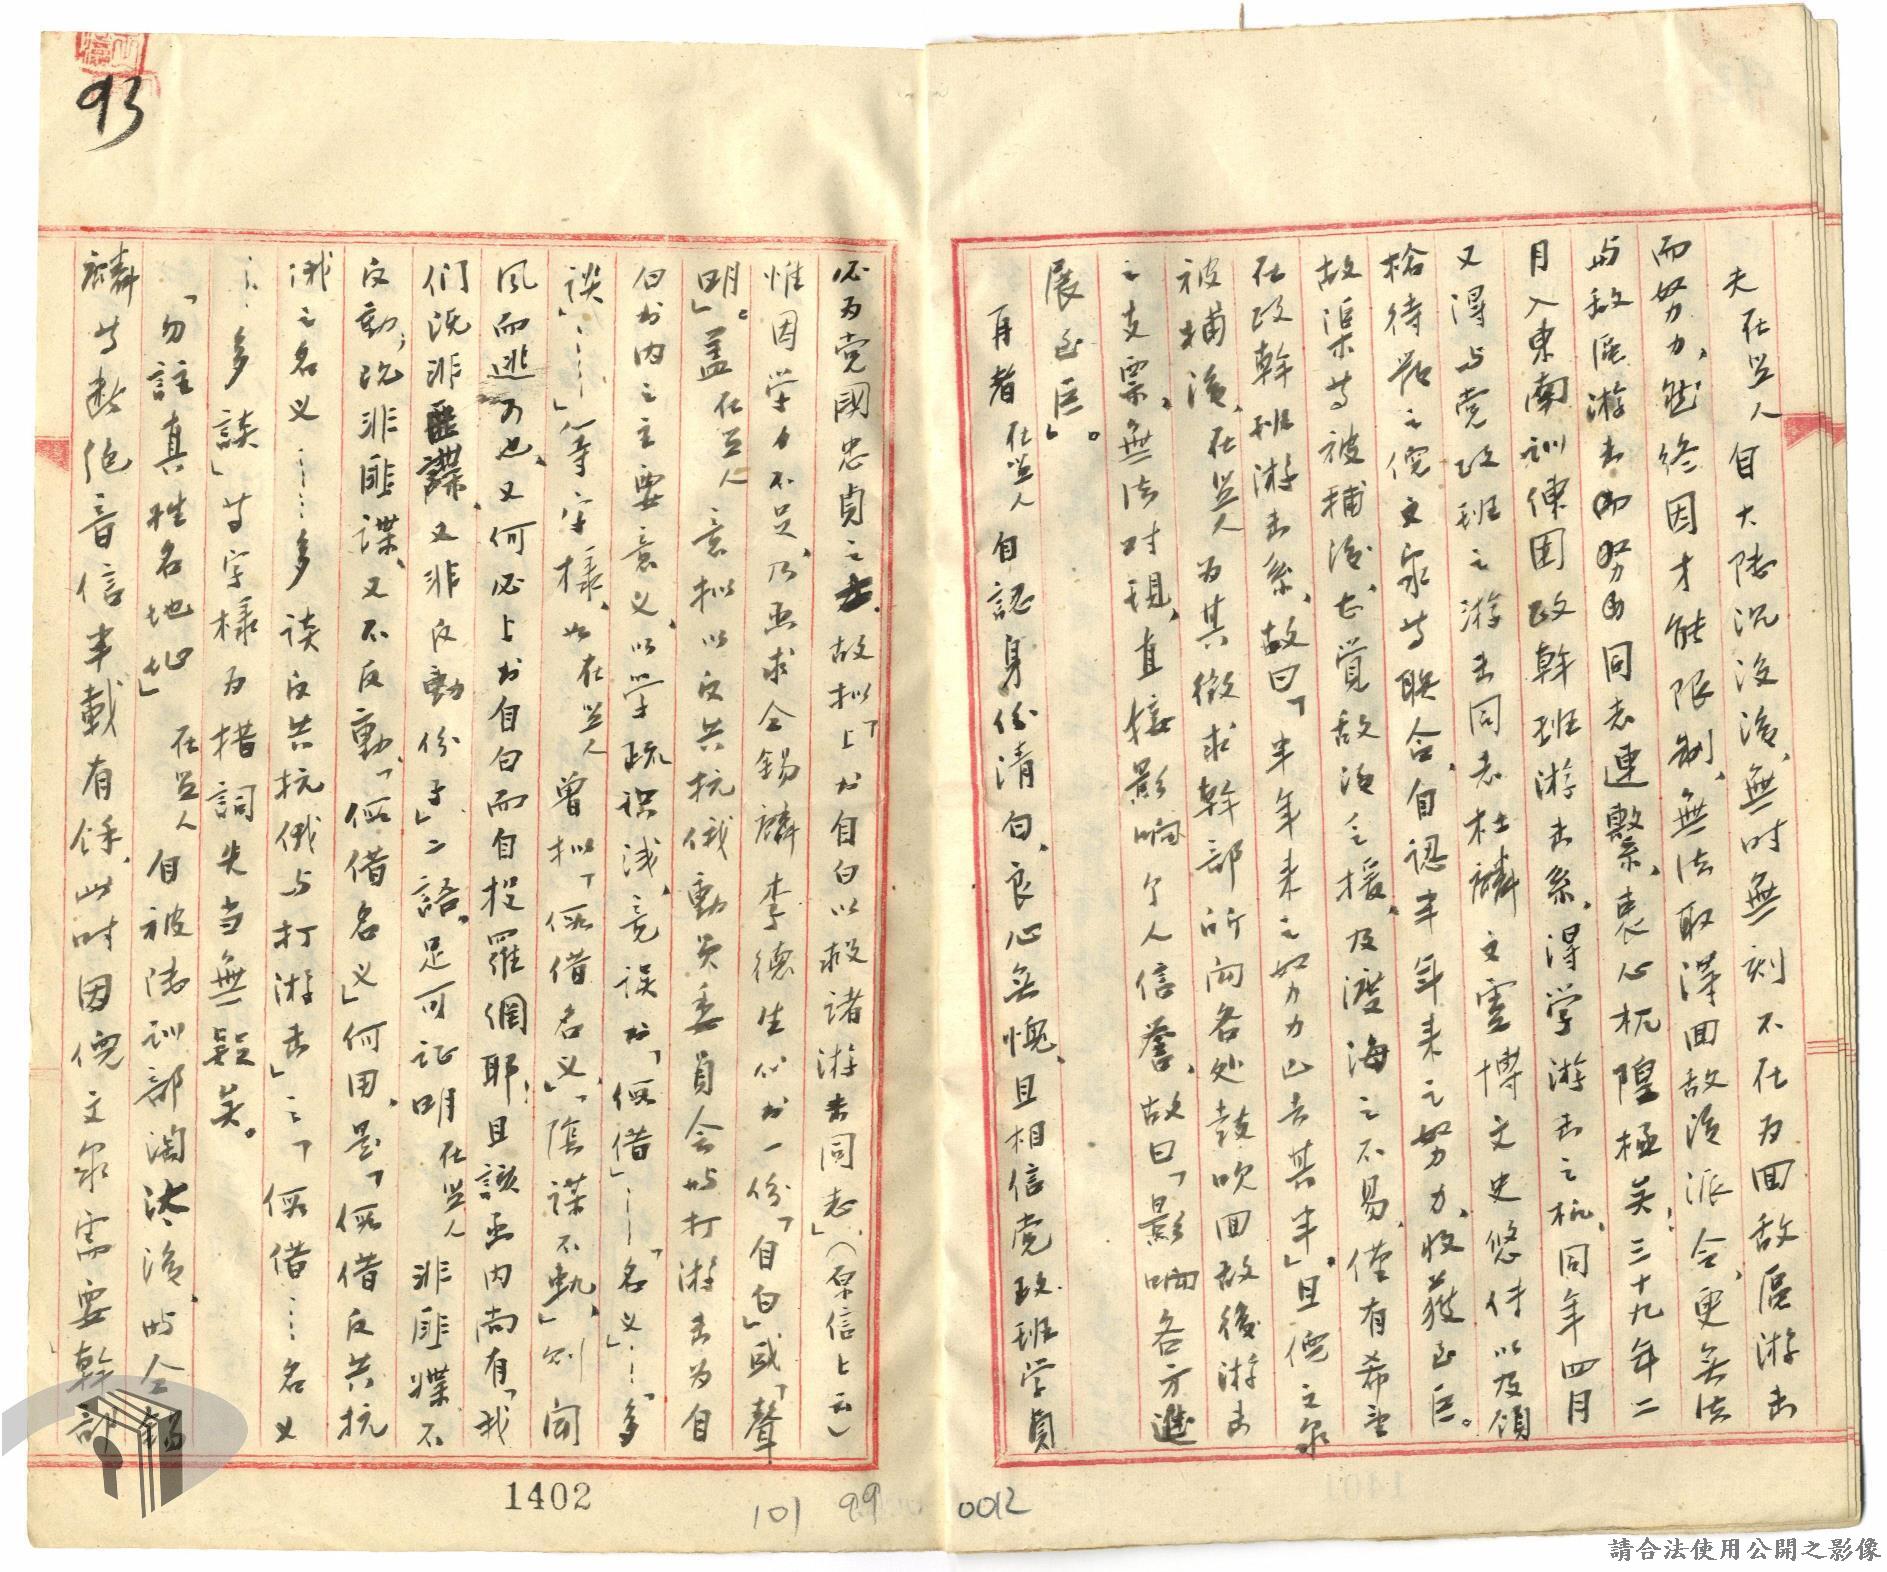 夫在監人自大陸沉淪後、無時無刻不在为回敌區游击
而努力，然終因才能限制、無法取得回敌後派令，更無法
与敌區游击同志連繫、衷心杌隍極矣；三十九年二
月入東南訓練團政幹班游击系，得学游击之机，同年四月
又得与党政班之游击同志杜麟文雲博文史悠侍以及領
枪待發之倪文泉等联合，自認半年来之努力、收获至巨。
故渠等被捕後，尤覚敌後之援，及渡海之不易，僅有希望
在政幹班游击系，故曰「半年来之努力出去其半」。且倪文泉
被捕後，在监人为其徵求幹部所向各处鼓吹回敌後游击
之支票，無法对現，直接影响个人信誉，故曰「影响各方進
展至巨」。
再者在监人自認身份清白、良心無愧、且相信党政班学員
必为党國忠貞之士，故拟「上书自白以救诸游击同志」（原信上云）
惟因学力不足，乃函求仝錫麟李德生代书一份「自白」或「聲
明」。蓋在监人意拟以反共抗俄動员委員会的打游击为自
白书内之主要意义，以学疏识浅，竟误书「假借」……「名义」……「多
談」……」等字樣，如在监人曾拟「假借名义」、「陰謀不軌」，则聞
風而逃可也，又何必上书自白而自投羅網耶；且該函内尚有「我
们既非匪諜，又非反動份子」二語，足可证明在监人非匪諜不
反動，既非匪諜，又不反動，「假借名义」何用，是「假借反共抗
俄之名义……多談反共抗俄与打游击」之「假借……名义
……多談」等字樣为措詞失当無疑矣。
「勿註真姓名地址」在监人自被陸訓部淘汰後、与仝錫
麟等断绝音信半載有余，此时因倪文泉需要幹部
93
1402
101
99
0012
請合法使用公開之影像